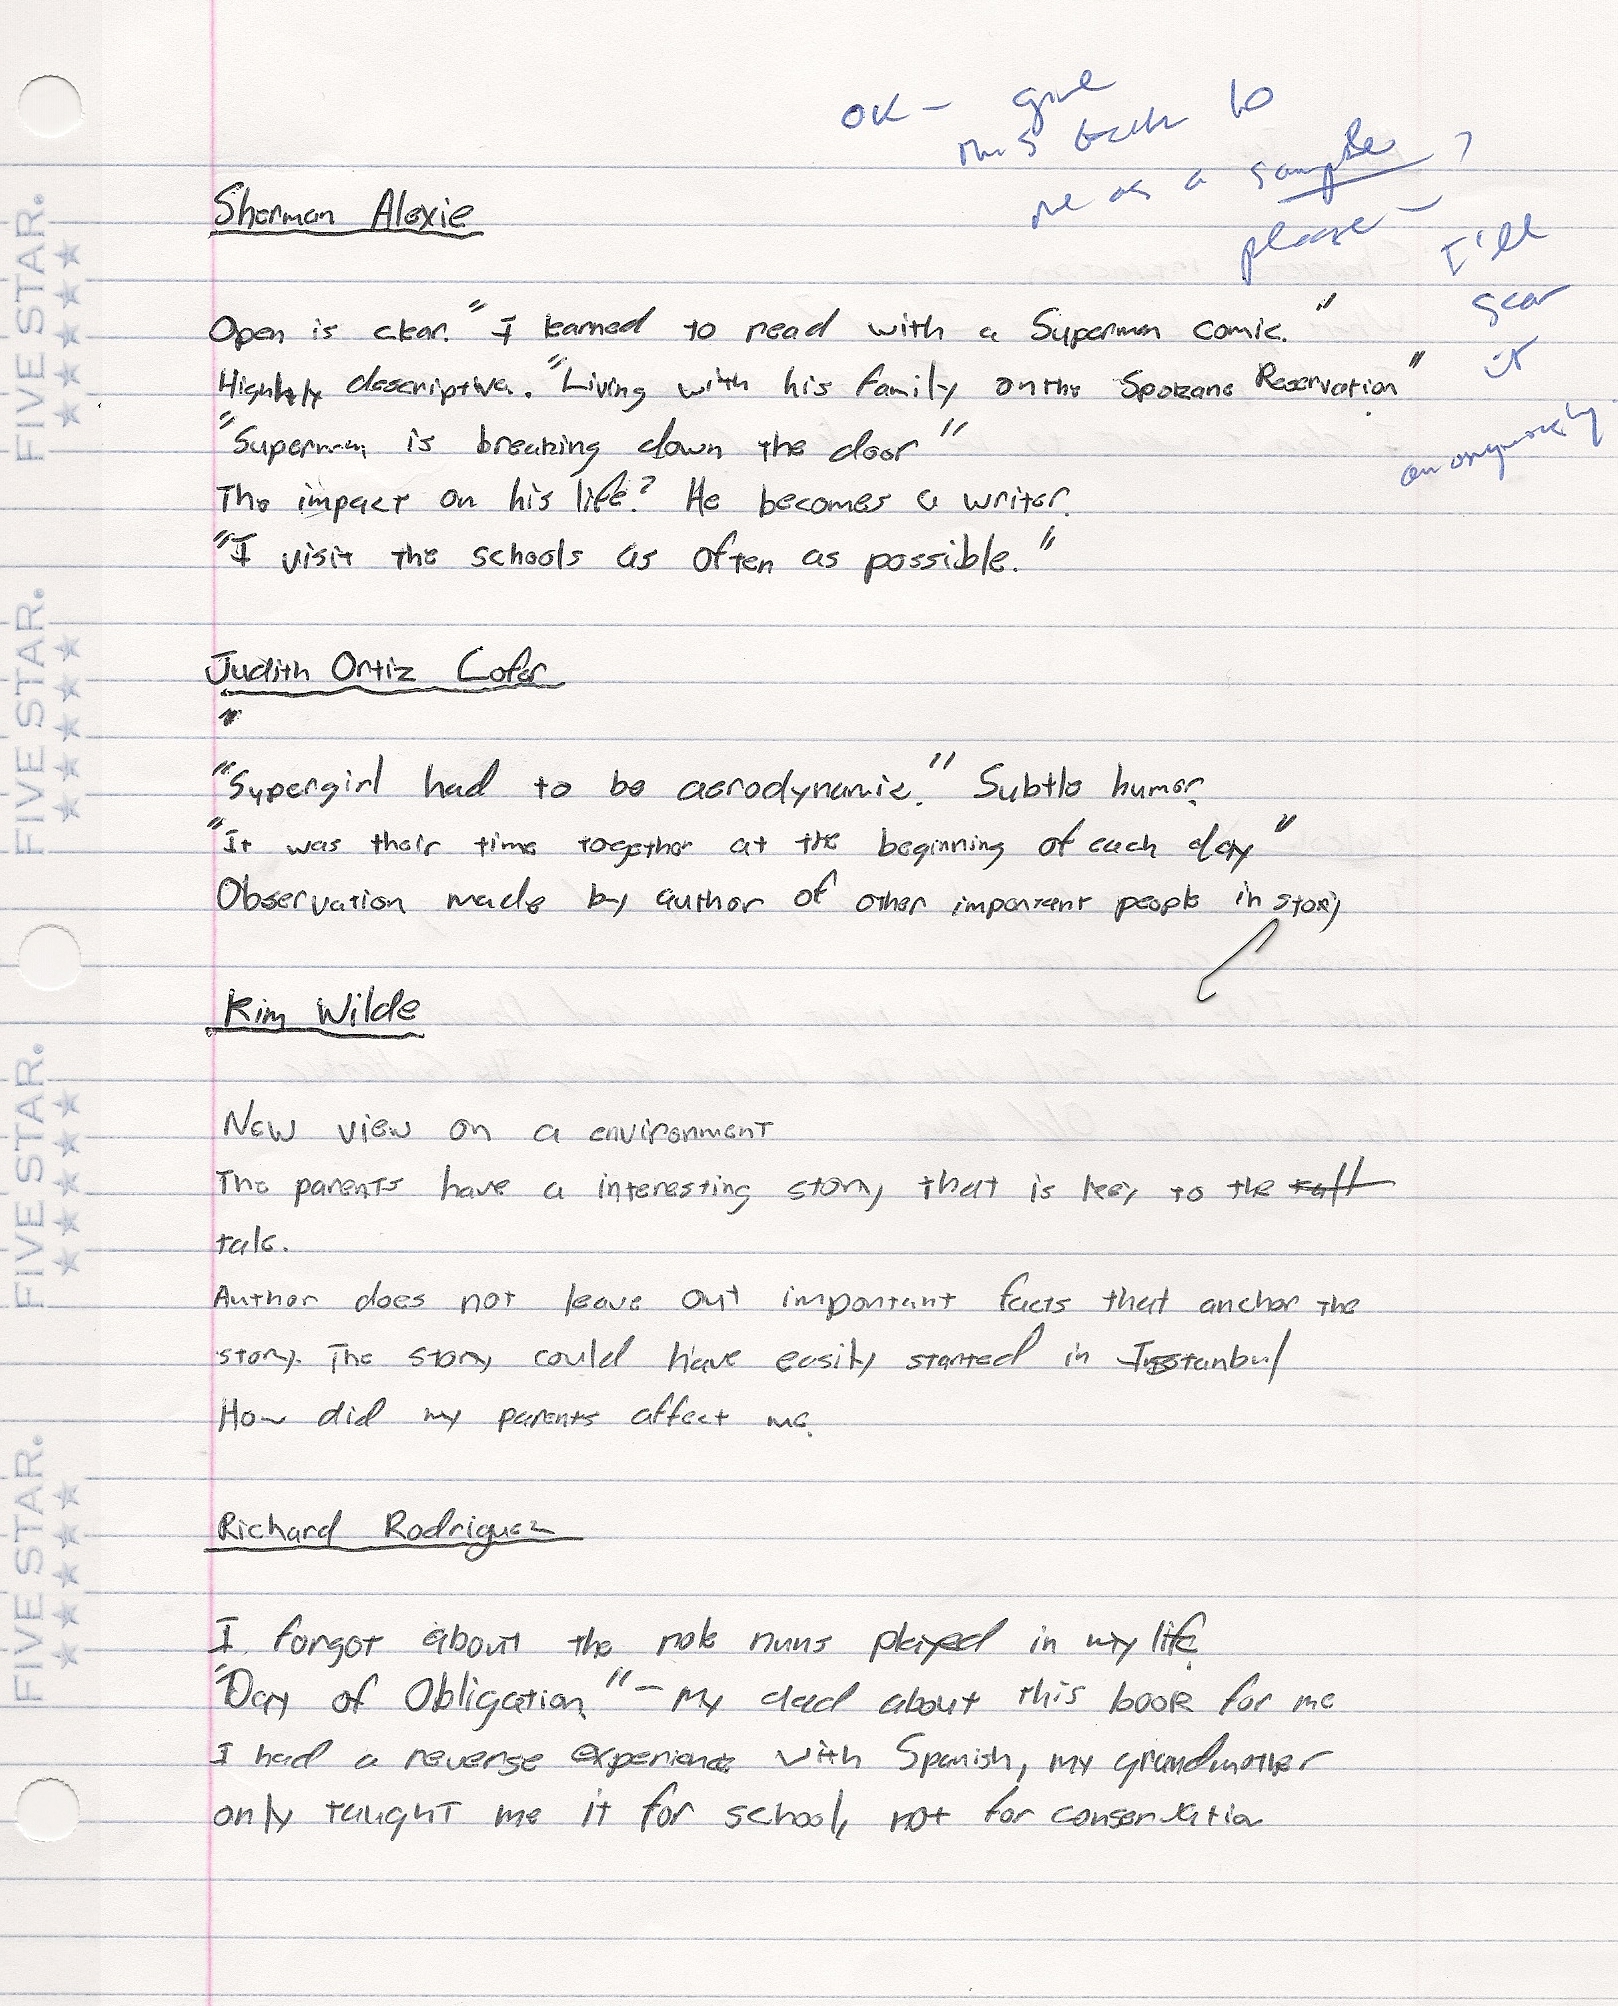 OK - give
this back to
me as a sample?
please -
I'll
scan
it
anonymously.
Sherman Alexie
Open is clear. "I learned to read with a Superman comic."
Highly descriptive. "Living with his family on the Spokane Reservation"
"Superman is breaking down the door"
The impact on his life? He becomes a writer.
"I visit the schools as often as possible."
Judith Ortiz Cofer
"
"Supergirl had to be aerodynamic." Subtle humor.
"It was their time together at the beginning of each day"
Observation made by author of other important people in story
Kim Wilde
New view on a environment
The parents have a interesting story that is key to the
tale.
Author does not leave out important facts that anchor the
story. The story could have easily started in Istanbul
How did my parents affect me.
Richard Rodriguez
I forgot about the role nuns played in my life.
"Day of Obligation" - My dad about this book for me
I had a reverse experience with Spanish, my grandmother
only taught me it for school, not for conservation
FIVE STAR.
FIVE STAR.
FIVE STAR.
FIVE STAR.